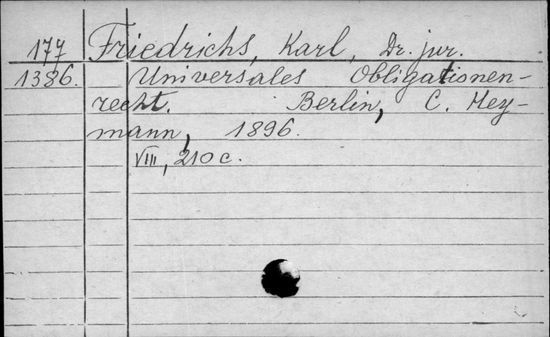 177 Friedrichs, Karl, Dr. jur.
1386. Universales Obligationen-
recht. Berlin, C. Hey-
mann, 1896.
VIII, 210 c.